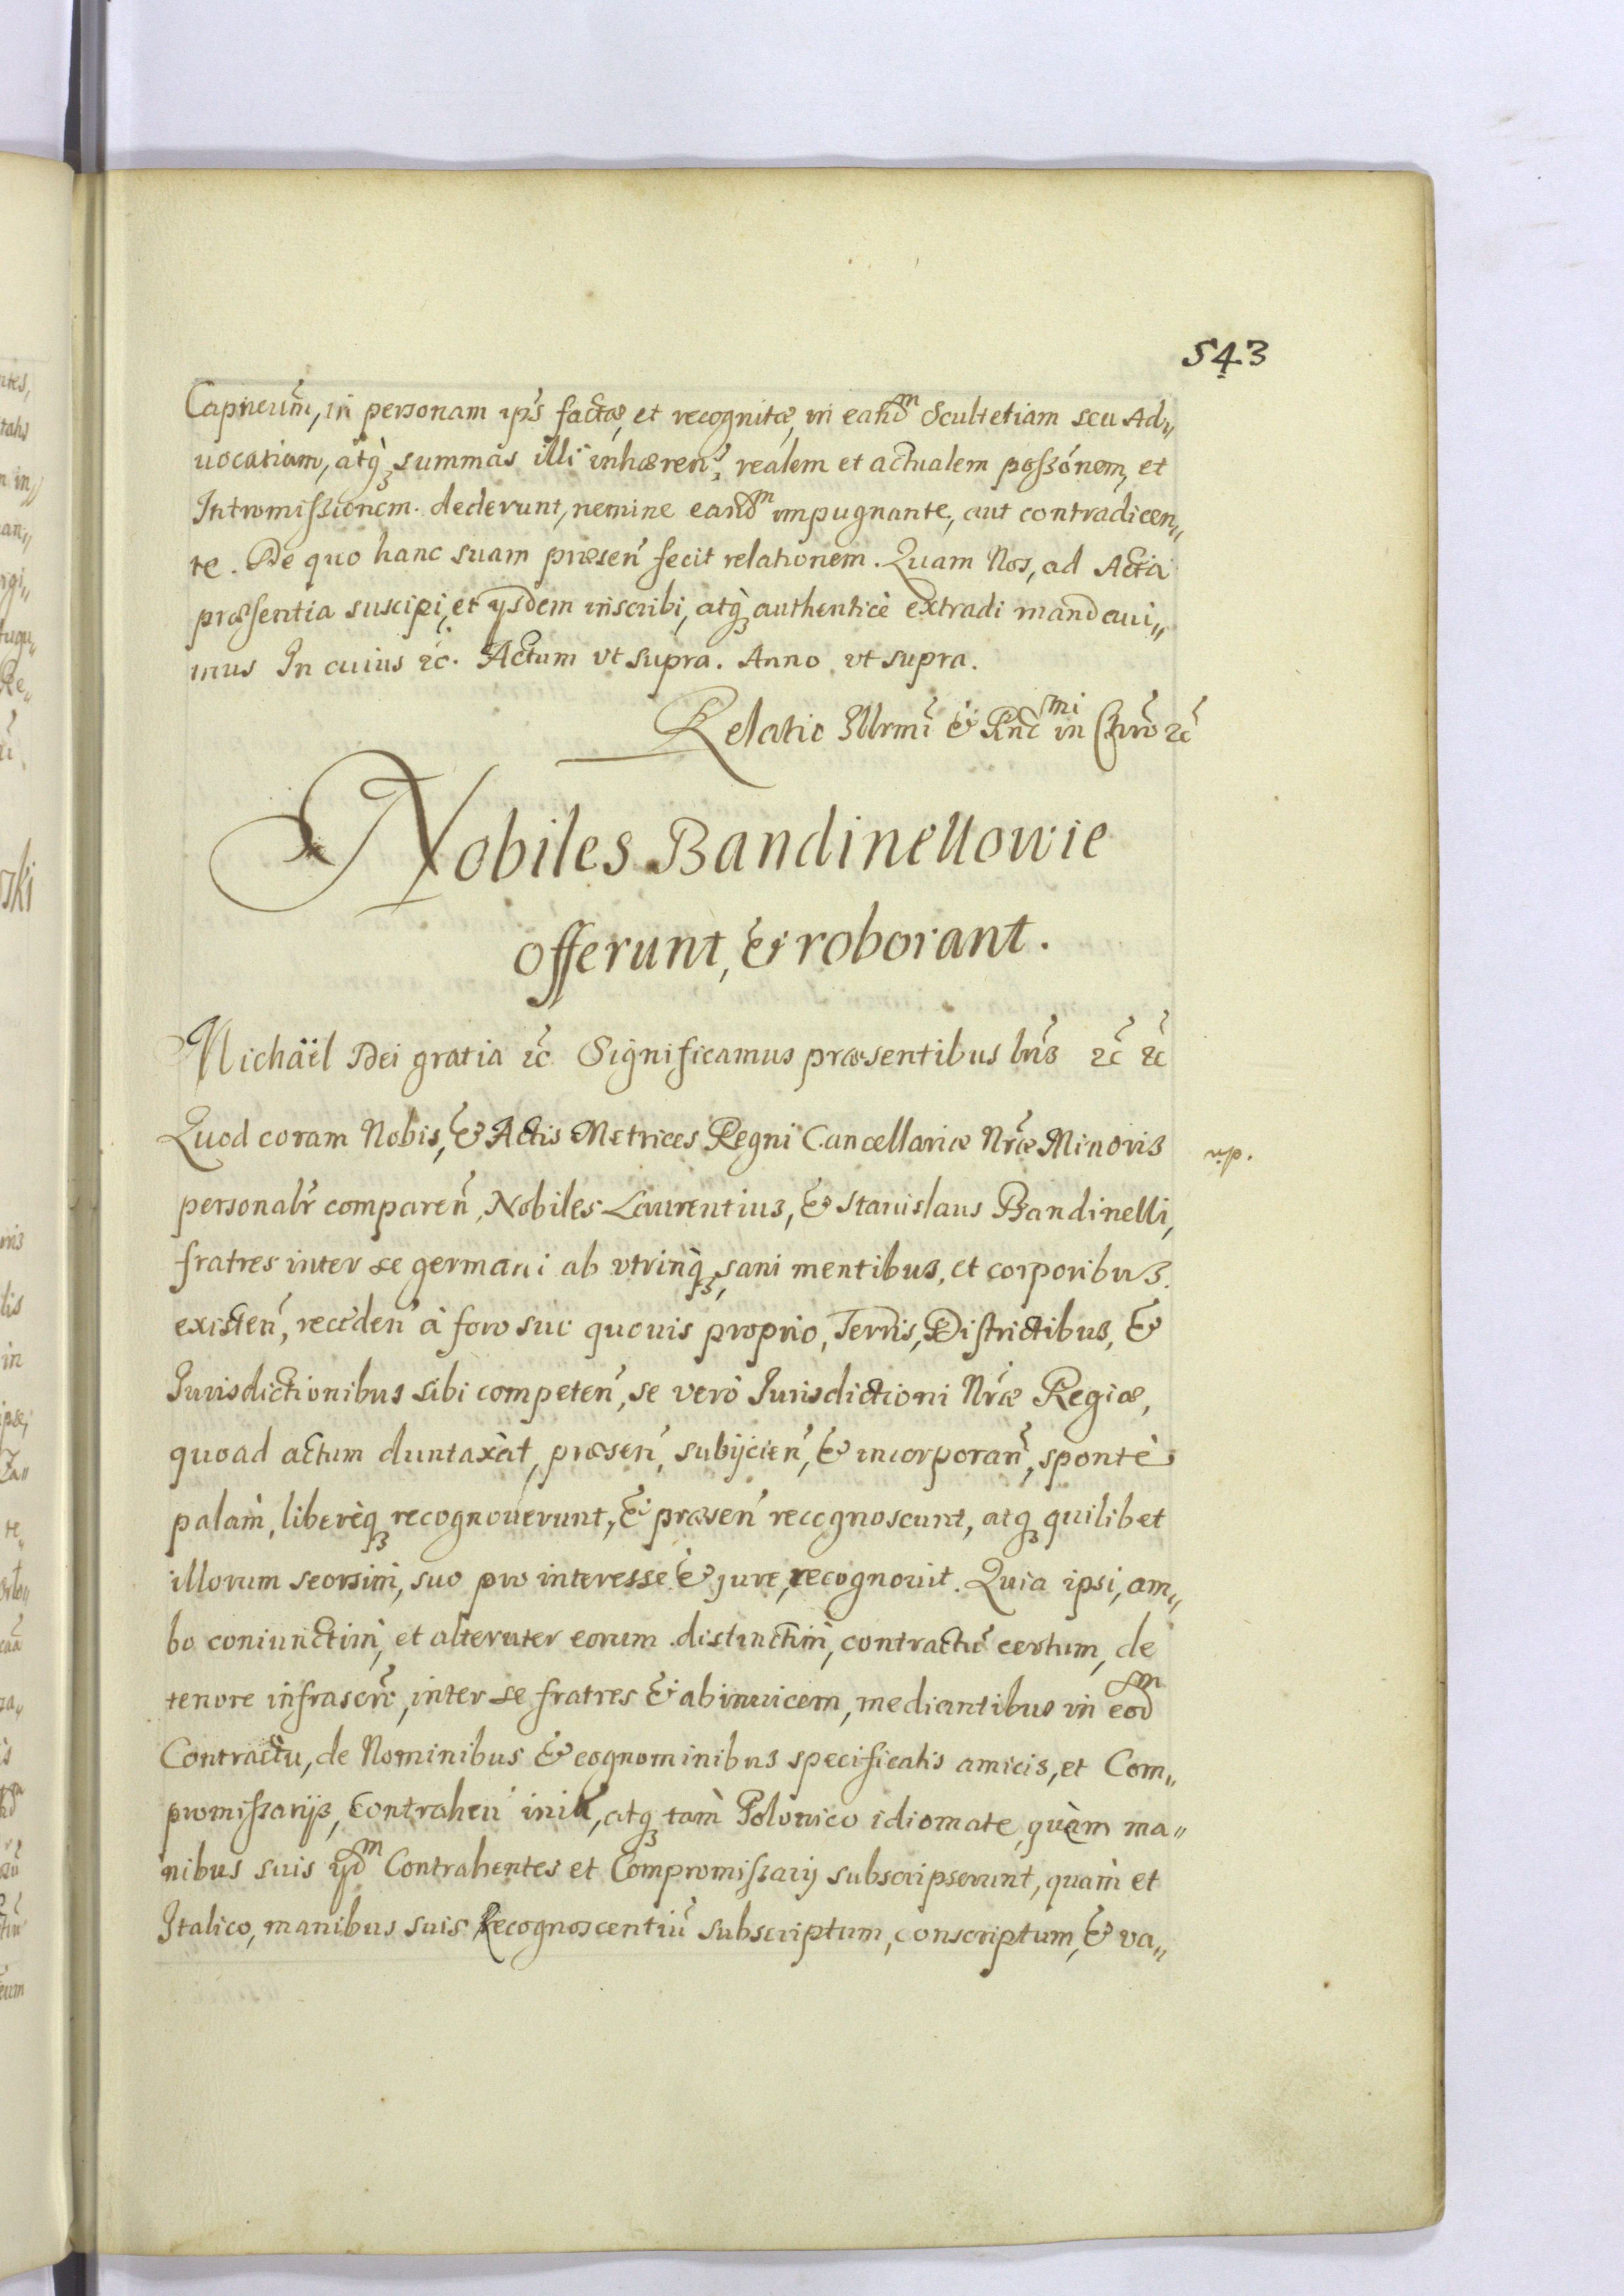 543
Capneum̃, in personam ip̃s factæ, et recognitæ, in eand̃m Scultetiam seu Ad„
uocatiam, atq̀ꝫ summas illi inhæreñ, realem et actualem possónem, et
Intromissionem. dederunt, nemine eand̃m impugnante, aut contradicen„
te. De quo hanc suam præseñ fecit relationem. Quam Nos, ad Acta
præsentia suscipi, et ijsdem inscribi, atq̀ꝫ authenticè extradi mandaui„
mus In cuius ꝛc̃. Actum vt supra. Anno vt supra.
Relatio Illrmĩ & Rñdmi in Chrõ ꝛc̃
Nobiles Bandinellowie
offerunt, & roborant.
Michäel Dei gratia ꝛc̃ Significamus præsentibus lrĩs ꝛc̃ ꝛc̃
Quod coram Nobis, & Actis Metrices Regni Cancellariæ Nr̃æ Minoris
np.
personalr̃ compareñ, Nobiles Laurentius, & Stanislaus Bandinelli,
fratres inter se germani ab vtrinq̀ꝫ, sani mentibus, et corporibus
existeñ, recedeñ à foro suo quouis proprio, Terris, Districtibus, &
Jurisdictionibus sibi competeñ, se verò Jurisdictioni Nr̃æ Regiæ,
quoad actum duntaxàt, præseñ, subijcieñ, & incorporañ, spontè
palam̀, liberèqꝫ recognouerunt, & præseñ recognoscunt, atqꝫ quilibet
illorum seorsim̀, suo pro interesse & jure, recognouit. Quia ipsi, am„
bo coniunctim̀, et alteruter eorum distinctim̀, contractũ certum, de
tenore infrascrõ, inter se fratres & abinuicem, mediantibus in eod̃m
Contractu, de Nominibus & cognominibus specificatis amicis, et Com„
promissarijs, contraheñ iniĩt, atqꝫ tam̀ Polonico idiomate, quàm ma„
nibus suis ijd̃m Contrahentes et Compromissarij subscripserunt, quam̀ et
Italico, manibus suis Recognoscentiũ subscriptum, conscriptum, & va„